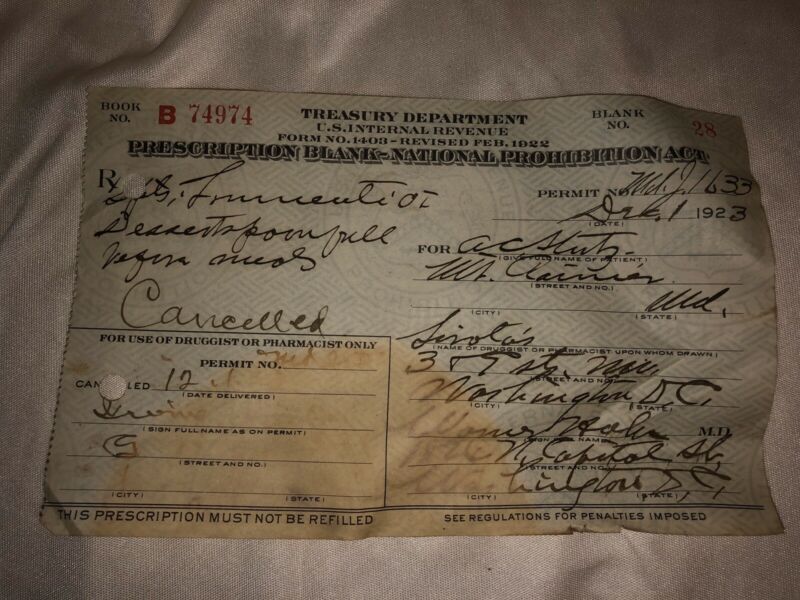 BOOK NO. B 74974
TREASURY DEPARTMENT
U.S. INTERNAL REVENUE
FORM NO. 1403-REVISED FEB. 1922
BLANK NO. 28
PRESCRIPTION BLANK-NATIONAL PROHIBITION ACT
Rx
Frumenti
Dessertspoonfull
meals
Cancelled
PERMIT NO. Md. J. 1633
Dec. 1 1923
(DATE)
FOR AC Stutz.
(GIVE FULL NAME OF PATIENT)
Mt. Rainier.
(STREET AND NO.)
Md.
(CITY) (STATE)
Sirota's
(NAME OF DRUGGIST OR PHARMACIST UPON WHOM DRAWN)
3 & F St. NW.
Washington, D.C.
(CITY) (STATE)
M.D.
(SIGN FULL NAME)
N. Capitol St.
(STREET AND NO.)
D.C.
(CITY) (STATE)
FOR USE OF DRUGGIST OR PHARMACIST ONLY
PERMIT NO.
CANCELLED 12
(DATE DELIVERED)
(SIGN FULL NAME AS ON PERMIT)
(STREET AND NO.)
(CITY) (STATE)
THIS PRESCRIPTION MUST NOT BE REFILLED
SEE REGULATIONS FOR PENALTIES IMPOSED